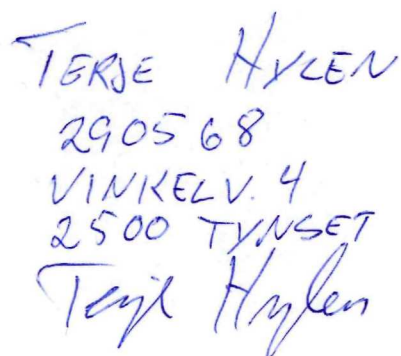 TERJE HYLEN
290568
VINKELV. 4
2500 TYNSET
Terje Hylen